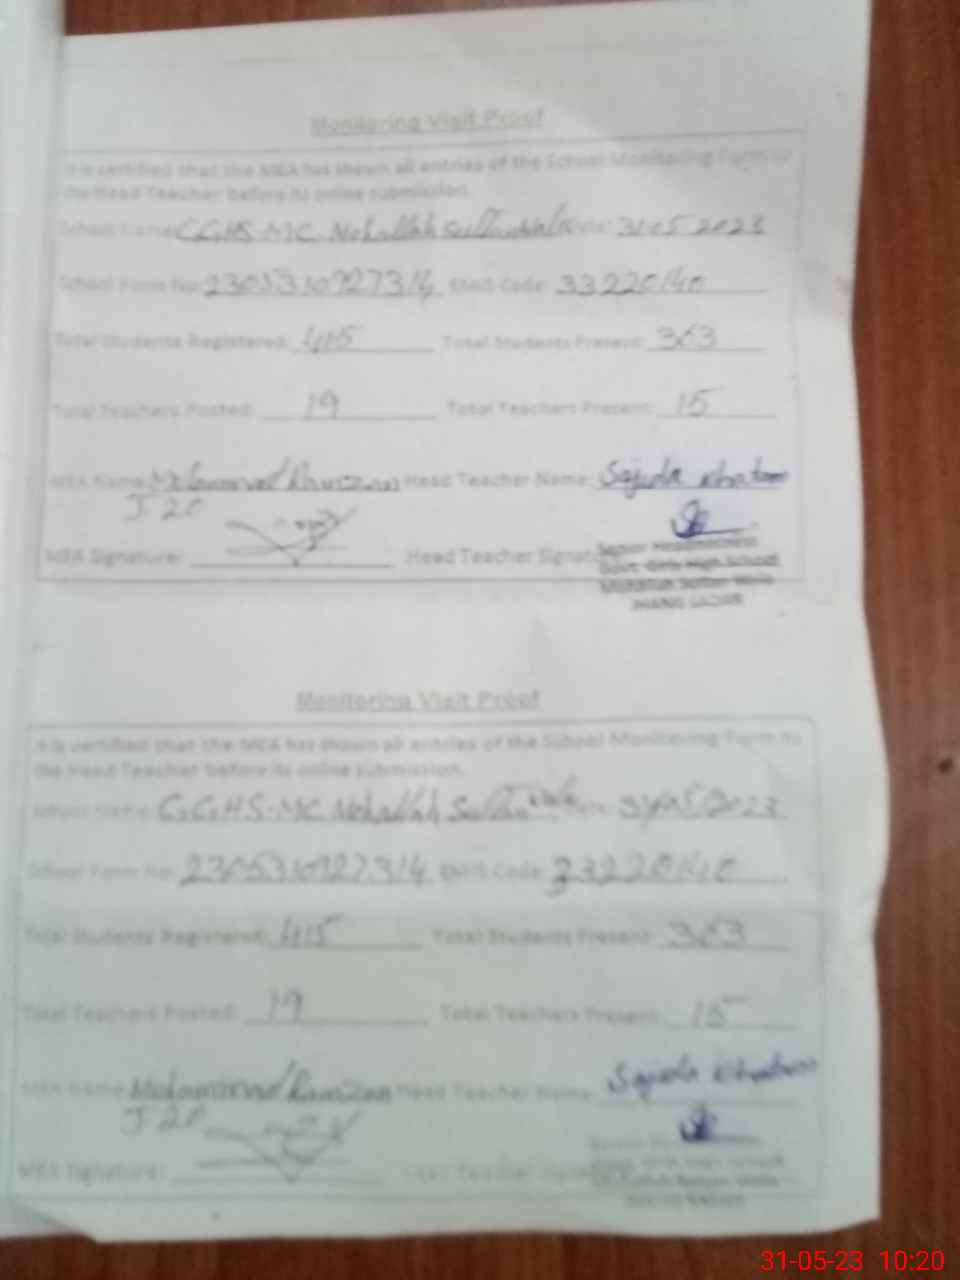 Monitoring Visit Proof
It is certified that the MEA has shown all entries of the School Monitoring Form to
the Head Teacher before its online submission.
School Name: GGHS-MC Mohallah Sultanwala Date: 31-05-2023
School Form No: EMIS Code: 33220140
Total Students Registered: 415 Total Students Present: 363
Total Teachers Posted: 19 Total Teachers Present: 15
MEA Name: Mohammad Ramzan Head Teacher Name: Sajida Khatoon
J 20
MEA Signature: Head Teacher Signature
Senior Headmistress
Govt. Girls High School
Mohallah Sultan Wala
JHANG SADAR
Monitoring Visit Proof
It is certified that the MEA has shown all entries of the School Monitoring Form to
the Head Teacher before its online submission.
School Name: G.G.H.S-MC Mohallah Sultanwala Date: 31/05/2023
School Form No: EMIS Code: 33220140
Total Students Registered: 415 Total Students Present: 363
Total Teachers Posted: 19 Total Teachers Present: 15
MEA Name: Mohammad Ramzan Head Teacher Name: Sajida Khatoon
J 20
MEA Signature: Head Teacher Signature
31-05-23 10:20